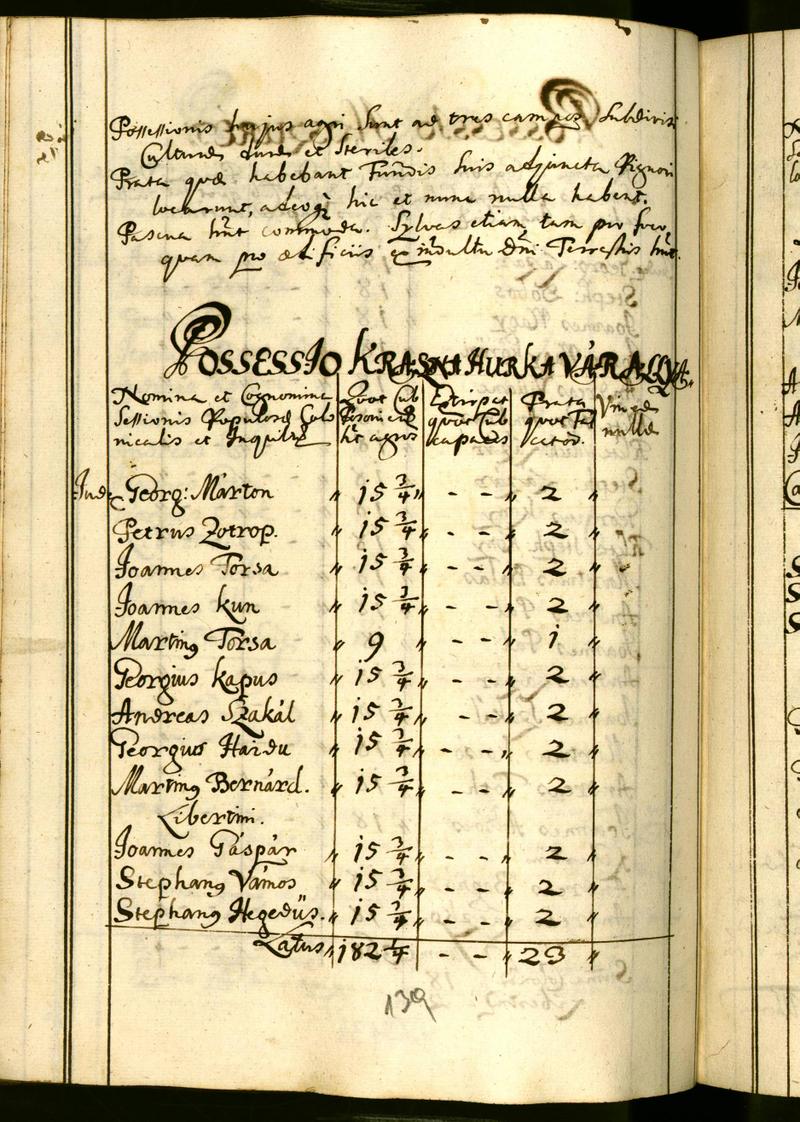 Possessionis hujus agri sunt ad tres campos subdivisi
Culturae durae et steriles.
Prata quae habebant Fundis suis adjuncta Pignori
locarunt, adeoq̃ hic et nunc nulla habent.
Pascua hñt commoda. Sylvas etiam tam pro foco,
quam pro aedificiis ex indultu Dñi Terrestris hñt.
POSSESSIO KRASNAHURKA VÁRALLYA.
Nomina et Cognomina
Sessionis Populosae Colo
nicalis et Inquil
Quot Cub
Poson
hñt agros
Extirpat
quot Cub
capaces
Prata
quot Fal
catór.
Vineae
nullae
Jud: Georg: Márton " 15 3/4 " - - " 2 "
Petrus Zotrop. " 15 3/4 " - - " 2 "
Joannes Torsa " 15 3/4 " - - " 2 "
Joannes Kun " 15 3/4 " - - " 2 "
Martin9 Torsa " 9 " - - " 1 "
Georgius Kapus " 15 3/4 " - - " 2 "
Andreas Szakál " 15 3/4 " - - " 2 "
Georgius Haidu " 15 3/4 " - - " 2 "
Martin9 Bernárd. " 15 3/4 " - - " 2 "
Libertini.
Joannes Gáspár " 15 3/4 " - - " 2 "
Stephan9 Vámos " 15 3/4 " - - " 2 "
Stephan9 Hegedüs. " 15 3/4 " - - " 2 "
Latus " 182 1/4 - - " 23 "
139